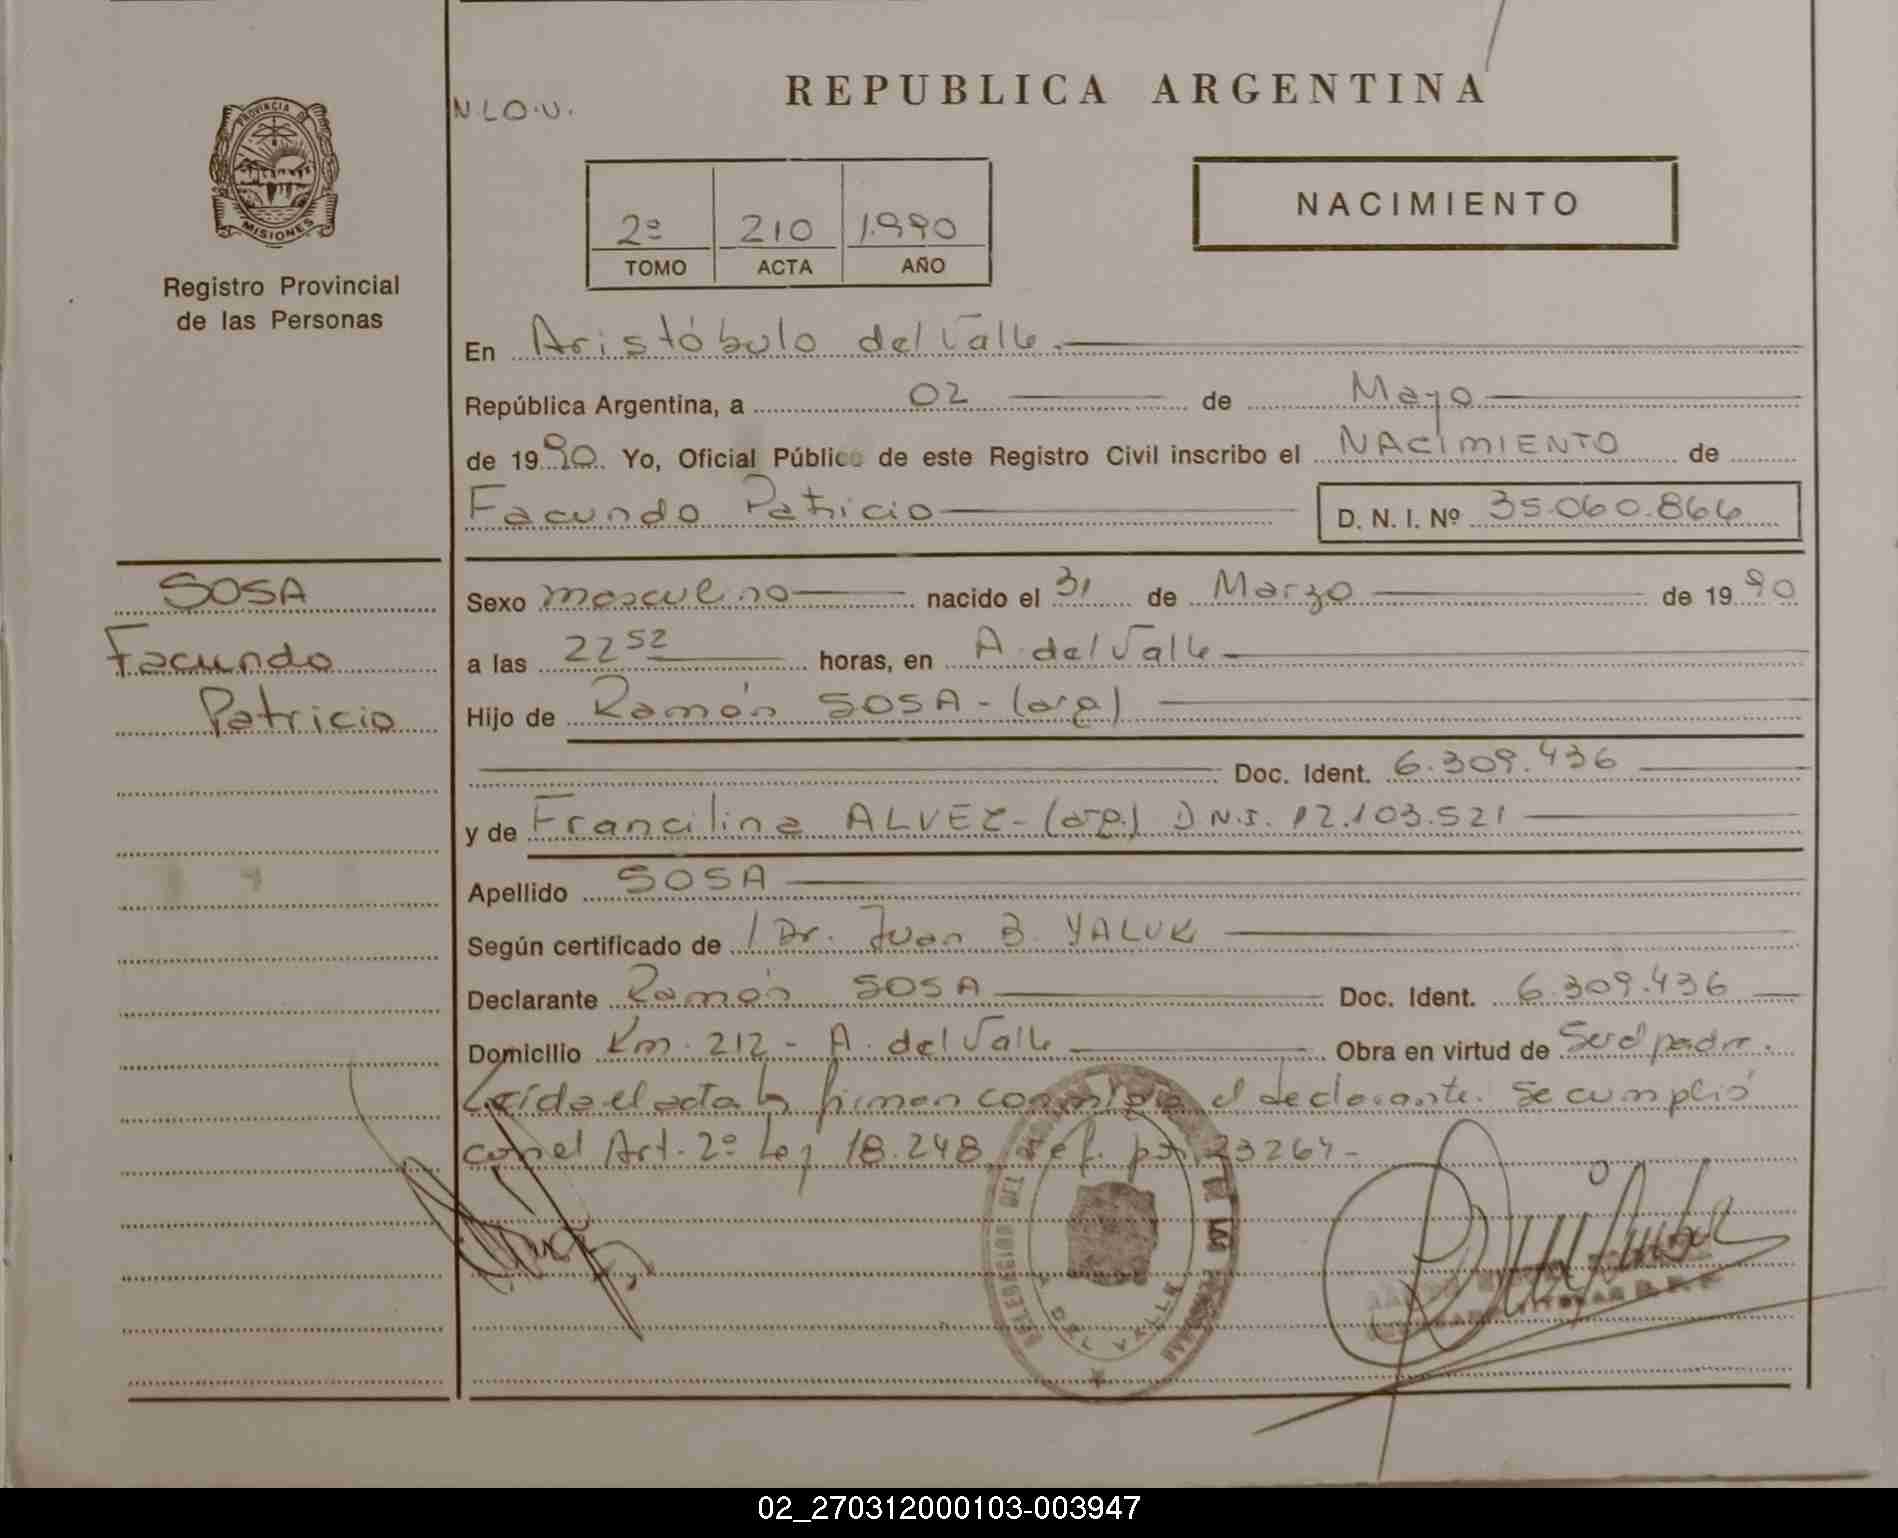 REPUBLICA ARGENTINA
N.L.O.U.
PROVINCIA DE
MISIONES
Registro Provincial
de las Personas
2º 210 1.990
TOMO ACTA AÑO
NACIMIENTO
En Aristóbulo del Valle.
República Argentina, a 02 de Mayo
de 1990. Yo, Oficial Público de este Registro Civil inscribo el NACIMIENTO de
Facundo Patricio D. N. I. Nº 35.060.866
SOSA
Facundo
Patricio
Sexo masculino nacido el 31 de Marzo de 1990
a las 22 52 horas, en A. del Valle
Hijo de Ramón SOSA - (arg)
Doc. Ident. 6.309.436
y de Francilina ALVEZ - (arg.) D.N.I. 12.103.521
Apellido SOSA
Según certificado de Dr. Juan B. YALUK
Declarante Ramón SOSA Doc. Ident. 6.309.436
Domicilio Km. 212 - A. del Valle Obra en virtud de Ser el padre.
Leída el acta la firman conmigo el declarante. Se cumplió
con el Art. 2º Ley 18.248 ref. por 23264 -
02_270312000103-003947